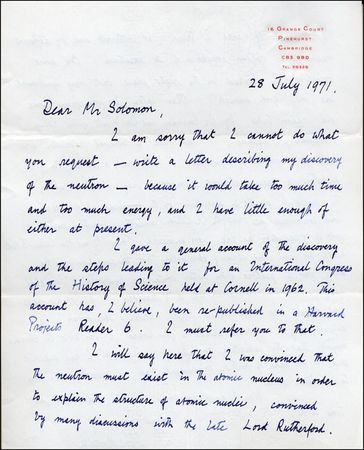 16 Grange Court
Pinehurst
Cambridge
CB3 9BD
28 July 1971.
Dear Mr Solomon,
I am sorry that I cannot do what
you request – write a letter describing my discovery
of the neutron – because it would take too much time
and too much energy, and I have little enough of
either at present.
I gave a general account of the discovery
and the steps leading to it for an International Congress
of the History of Science held at Cornell in 1962. This
account has, I believe, been re-published in a Harvard
Projects Reader 6. I must refer you to that.
I will say here that I was convinced that
the neutron must exist in the atomic nucleus in order
to explain the structure of atomic nuclei, convinced
by many discussions with the late Lord Rutherford.